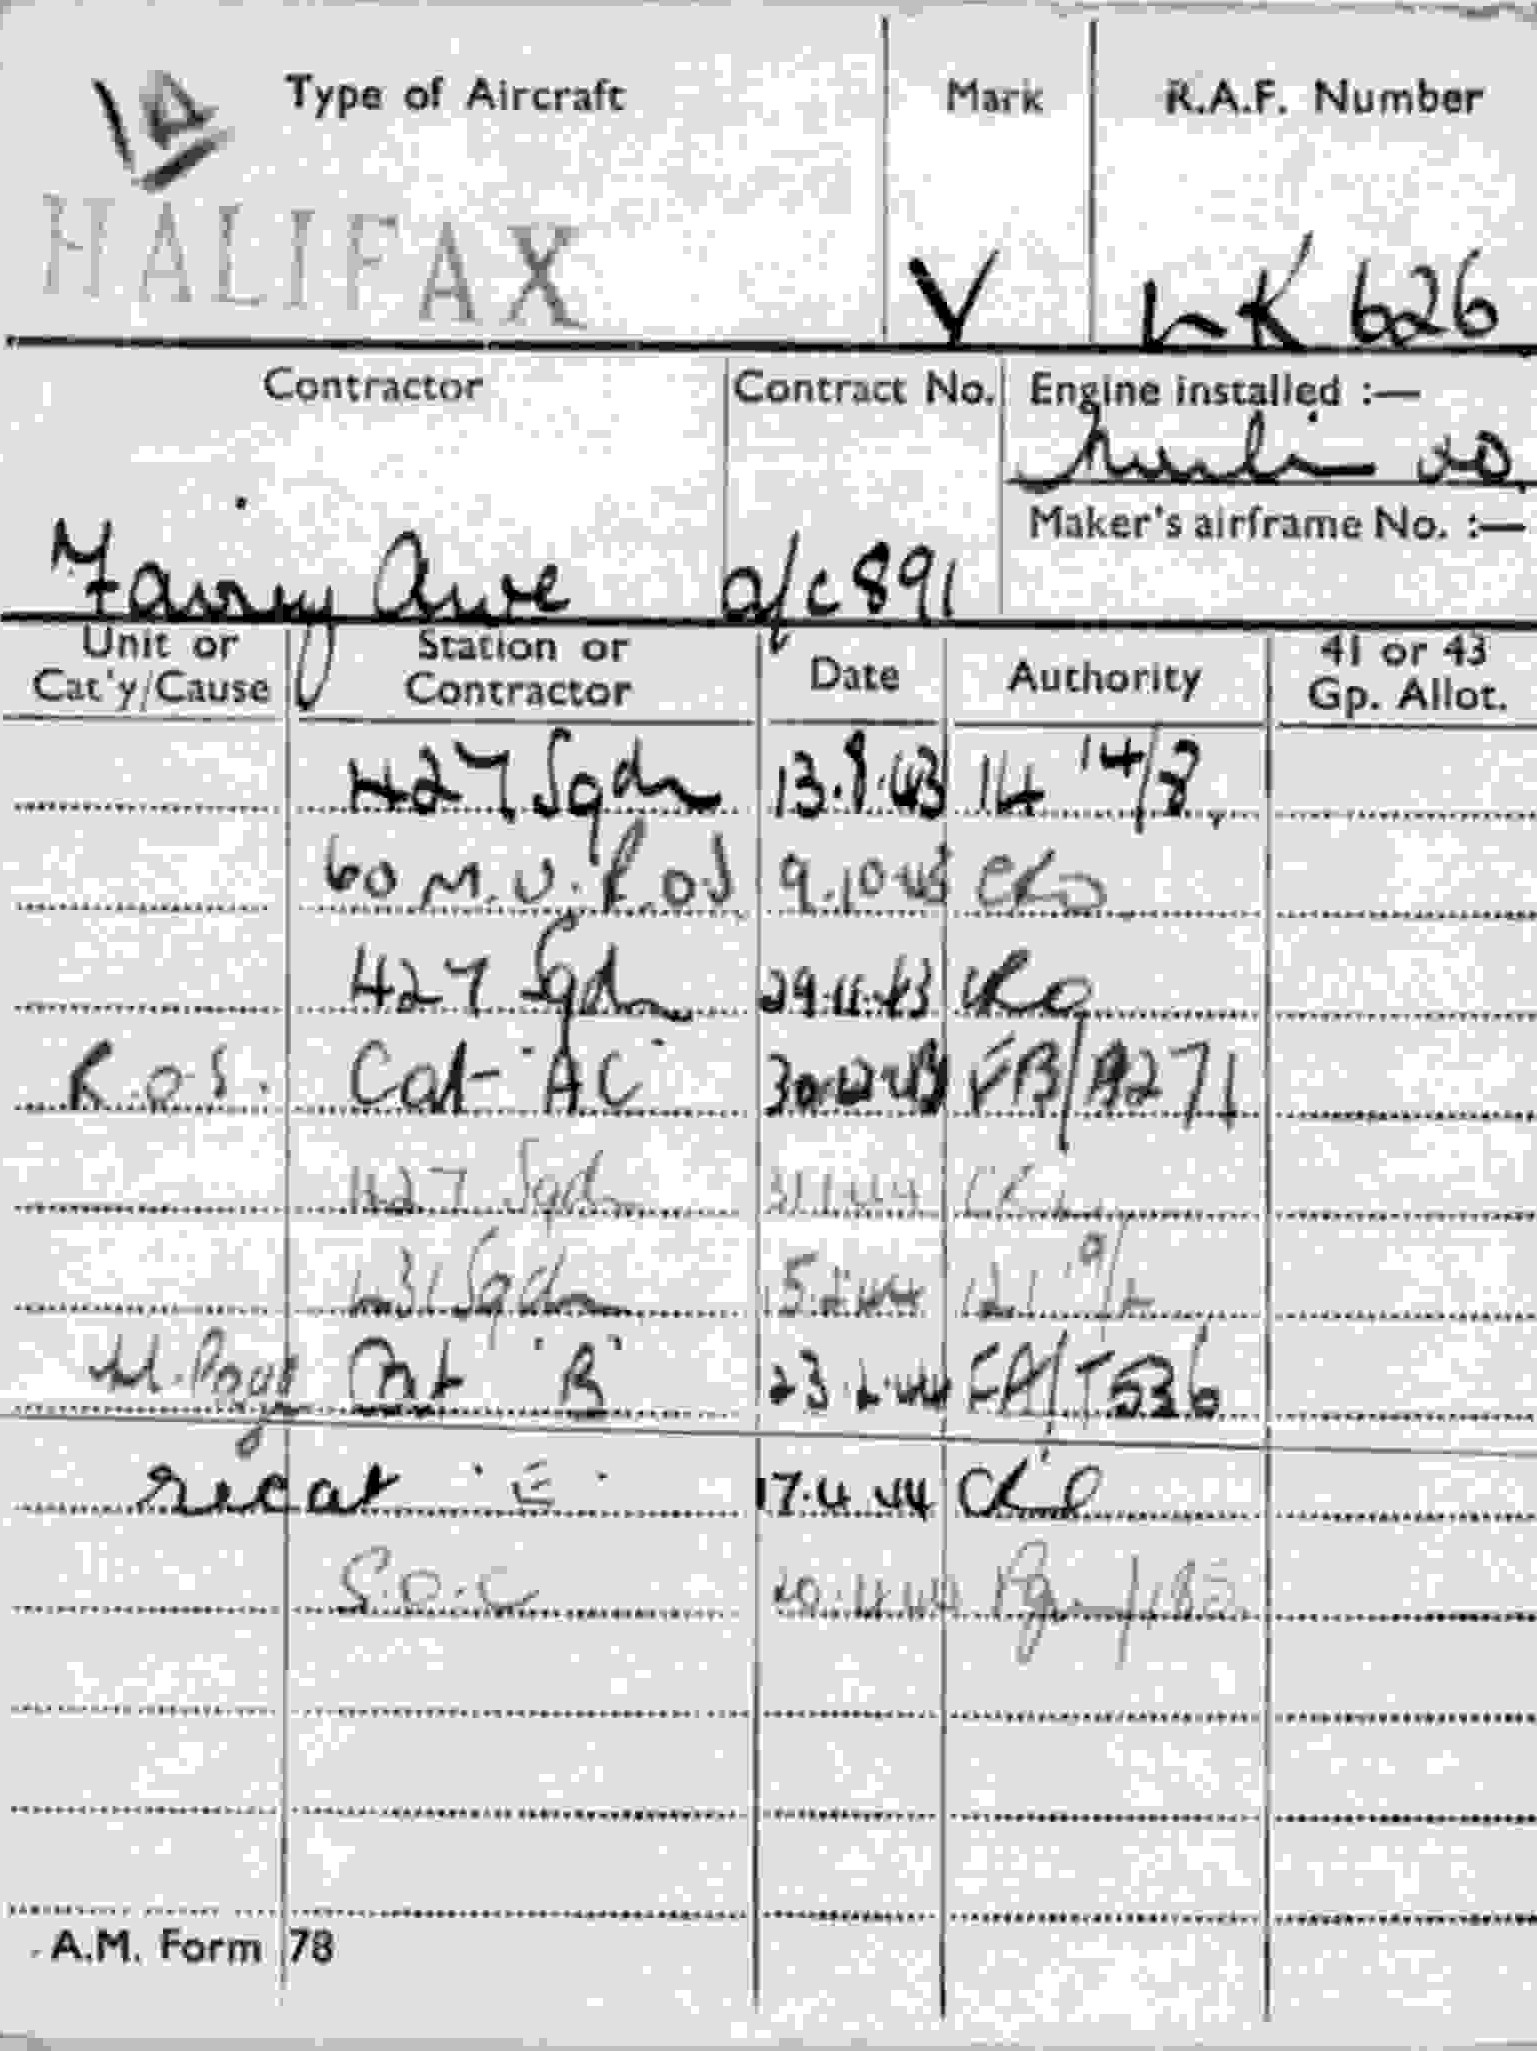 Type of Aircraft Mark R.A.F. Number
HALIFAX V LK 626
Contractor Contract No. Engine installed :—
Merlin 20.
Maker's airframe No. :—
Fairey a/c 891
Unit or Cat'y/Cause Station or Contractor Date Authority 41 or 43 Gp. Allot.
427 Sqdn 13.8.43 14 14/8.
60 M.U. R.O.S 9.10.43 CRO
427 Sqdn 29.11.43 CRO
R.O.S. Cat "AC" 30.12.43 FB/A271
427 Sqdn 31.1.44
431 Sqdn
Cat "B" 23.2.44 FA/T536
recat "E" 17.4.44 CRO
S.O.C
A.M. Form 78